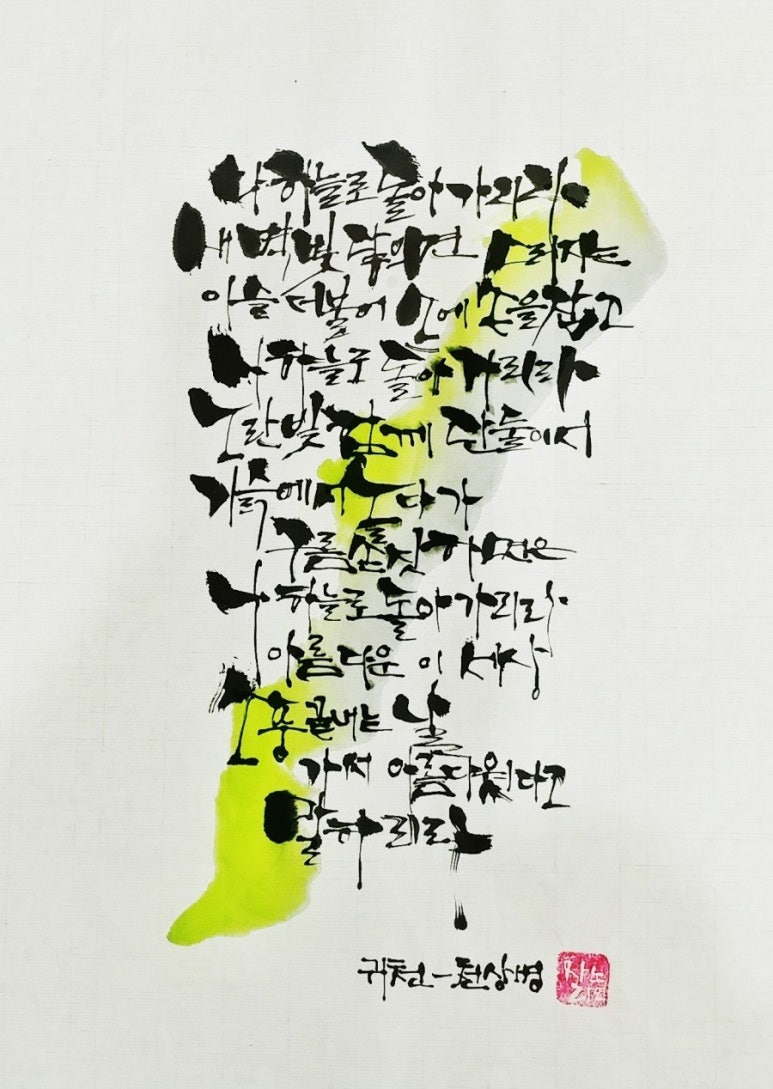 나 하늘로 돌아가리라
새벽빛 닿으면 스러지는
이슬 더불어 손에 손을 잡고
나 하늘로 돌아가리라
노란빛 함께 단둘이서
기슭에서 놀다가
구름 손짓하면은
나 하늘로 돌아가리라
아름다운 이 세상
소풍 끝내는 날
가서 아름다웠다고
말하리라
귀천-천상병